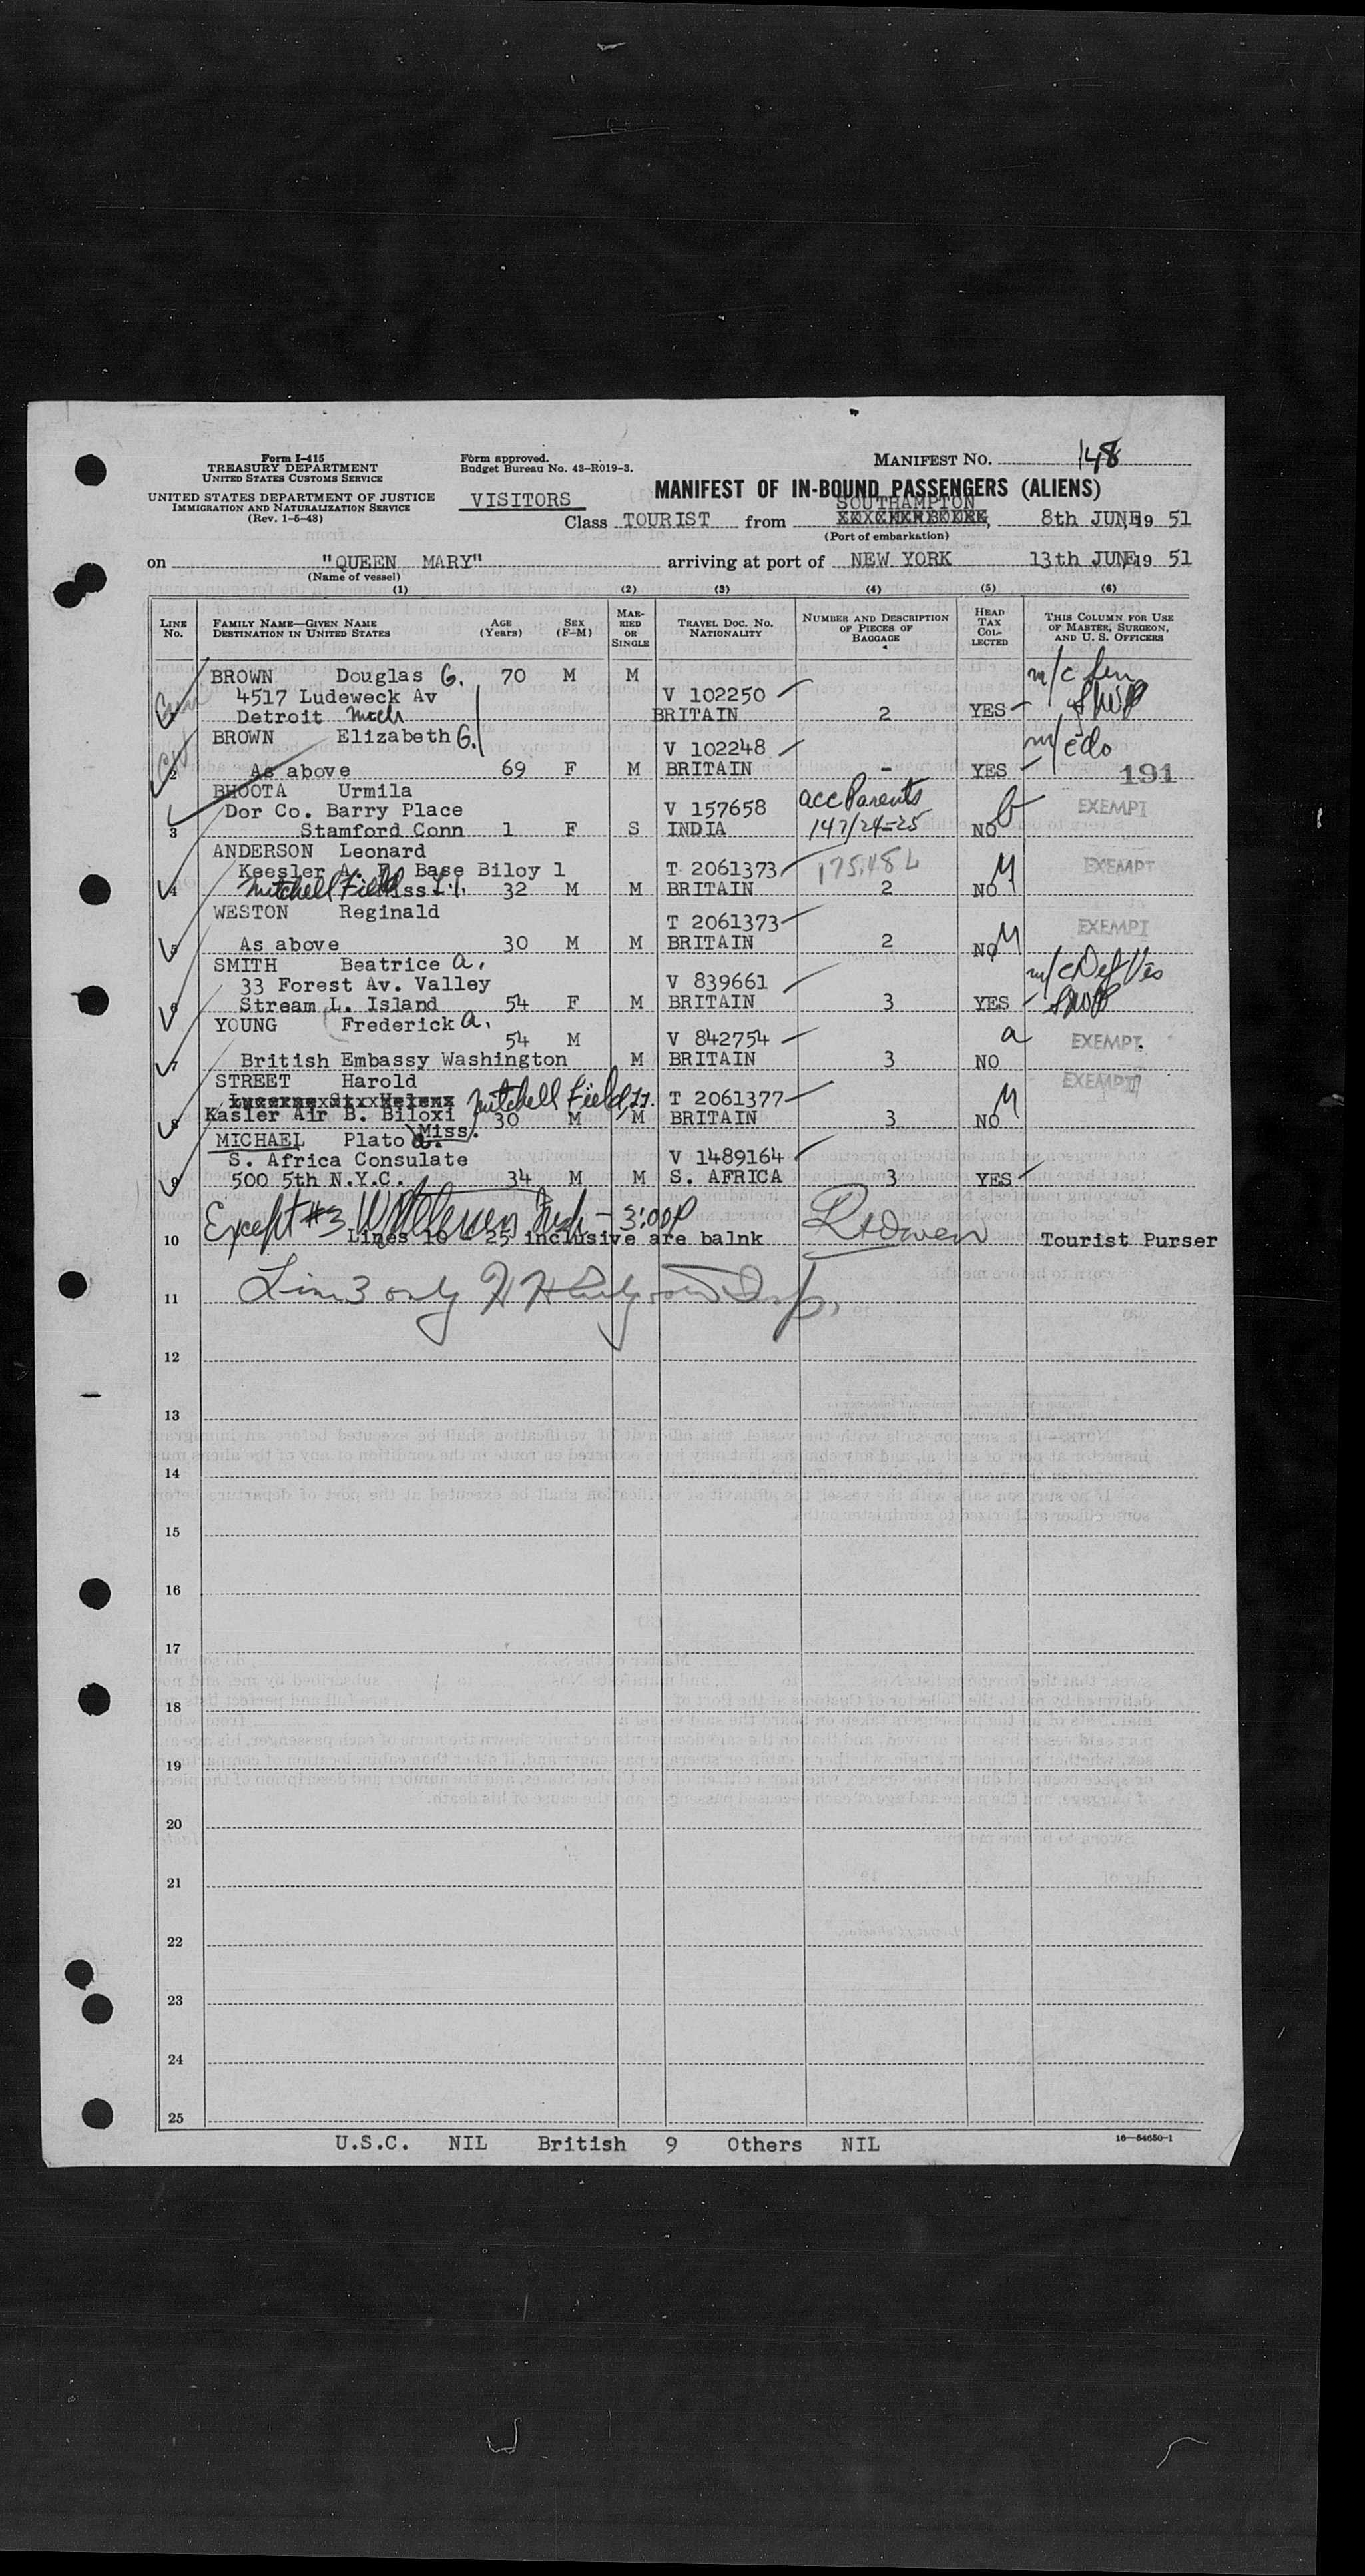 Form I-415
TREASURY DEPARTMENT
UNITED STATES CUSTOMS SERVICE
UNITED STATES DEPARTMENT OF JUSTICE
IMMIGRATION AND NATURALIZATION SERVICE
(Rev. 1-5-48)
Form approved.
Budget Bureau No. 43-R019-3.
VISITORS
MANIFEST NO. 148
MANIFEST OF IN-BOUND PASSENGERS (ALIENS)
SOUTHAMPTON
Class TOURIST from , 8th JUNE, 19 51
(Port of embarkation)
on "QUEEN MARY" arriving at port of NEW YORK 13th JUNE, 19 51
(Name of vessel)
(1) (2) (3) (4) (5) (6)
LINE No. FAMILY NAME—GIVEN NAME DESTINATION IN UNITED STATES AGE (Years) SEX (F-M) MARRIED OR SINGLE TRAVEL DOC. NO. NATIONALITY NUMBER AND DESCRIPTION OF PIECES OF BAGGAGE HEAD TAX COLLECTED THIS COLUMN FOR USE OF MASTER, SURGEON, AND U. S. OFFICERS
BROWN Douglas G. 70 M M
4517 Ludeweck Av V 102250
Detroit Mich BRITAIN 2 YES
BROWN Elizabeth G. V 102248
2 As above 69 F M BRITAIN - YES 191
BHOOTA Urmila acc Parents
Dor Co. Barry Place V 157658 EXEMPT
3 Stamford Conn 1 F S INDIA 147/24-25 NO
ANDERSON Leonard
Keesler A. F. Base Biloy l T 2061373 EXEMPT
4 Mitchell Field Miss L.I. 32 M M BRITAIN 2 NO M
WESTON Reginald T 2061373 EXEMPT
5 As above 30 M M BRITAIN 2 NO M
SMITH Beatrice A.
33 Forest Av. Valley V 839661
6 Stream L. Island 54 F M BRITAIN 3 YES
YOUNG Frederick A.
54 M V 842754 EXEMPT.
7 British Embassy Washington M BRITAIN 3 NO a
STREET Harold EXEMPT
Mitchell Field, L.I. T 2061377
8 Kasler Air B. Biloxi Miss. 30 M M BRITAIN 3 NO M
MICHAEL Plato a.
S. Africa Consulate V 1489164
9 500 5th N.Y.C. 34 M M S. AFRICA 3 YES
Except #3 - 3:00P
10 Lines 10 - 25 inclusive are balnk Tourist Purser
11 Line 3 only Insp.
12
13
14
15
16
17
18
19
20
21
22
23
24
25
U.S.C. NIL British 9 Others NIL
16—54650-1